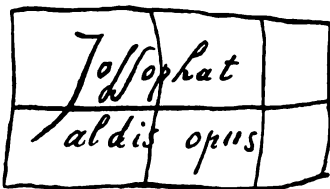 Joſſophat
aldis opus